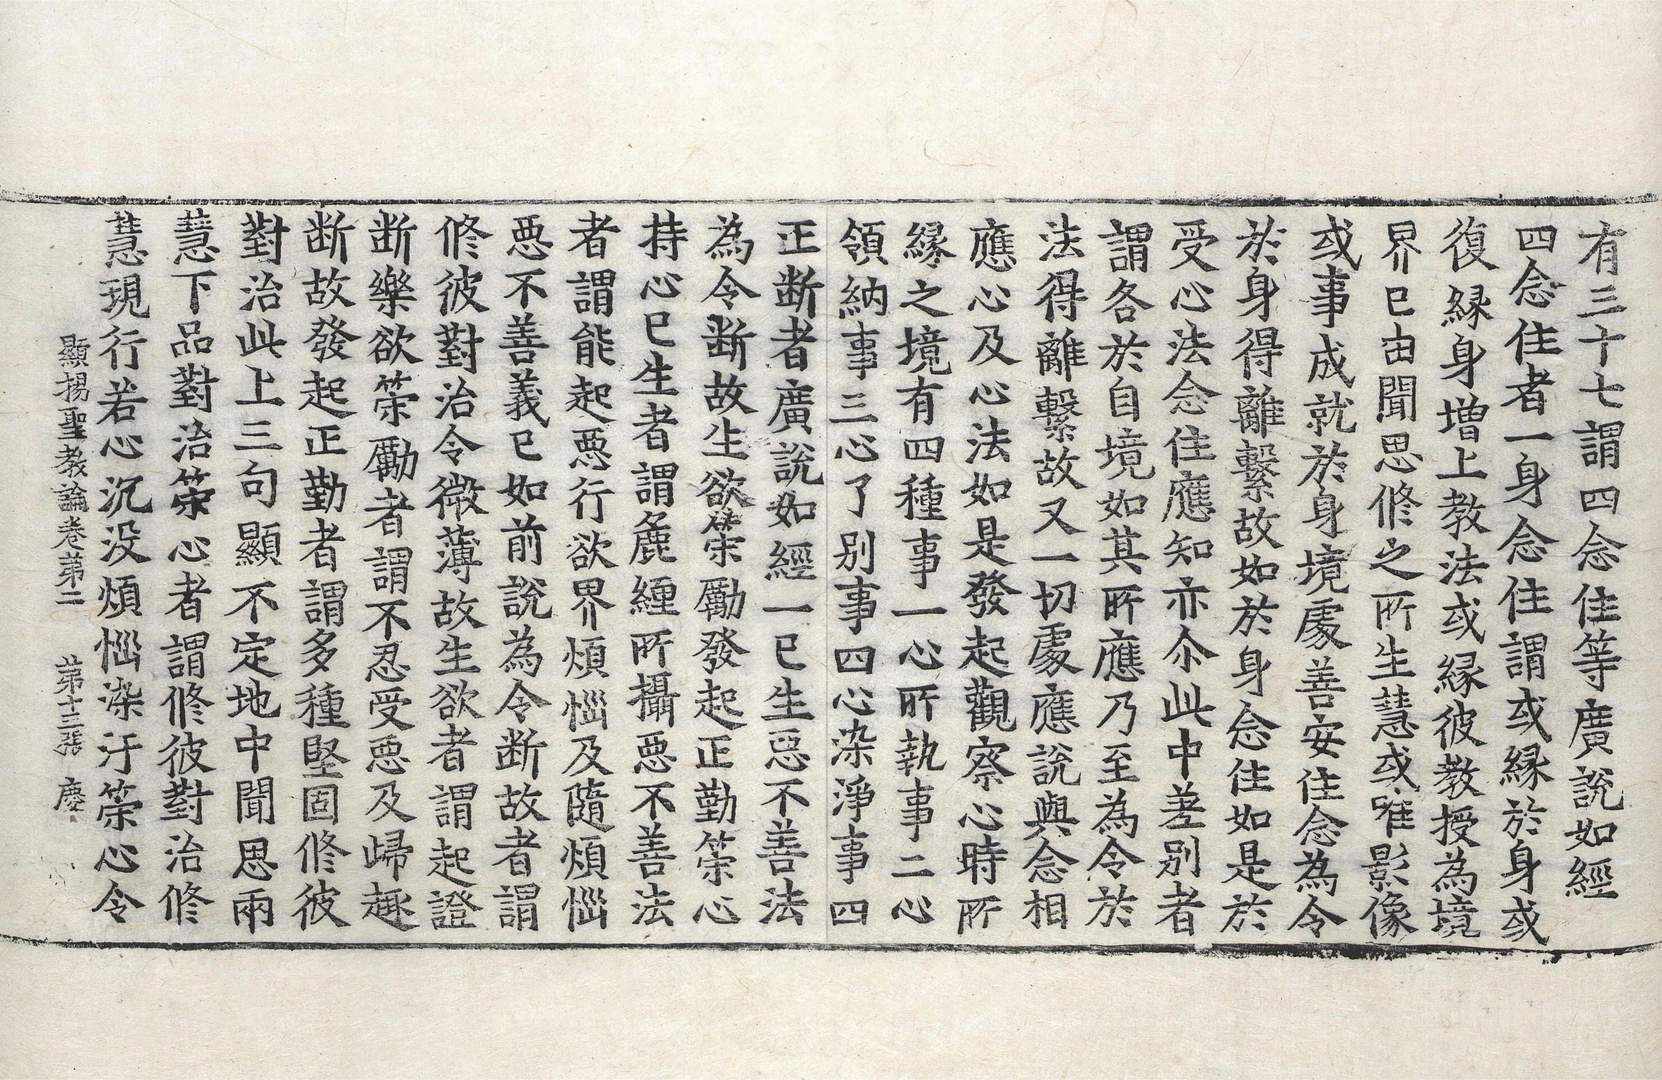 有三十七謂四念住等廣說如經
四念住者一身念住謂或緣於身或
復緣身增上教法或緣彼教授為境
界已由聞思修之所生慧或唯影像
或事成就於身境處善安住念為令
於身得離繫故如於身念住如是於
受心法念住應知亦尒此中差別者
謂各於自境如其所應乃至為令於
法得離繫故又一切處應說與念相
應心及心法如是發起觀察心時所
緣之境有四種事一心所執事二心
領納事三心了別事四心染淨事四
正断者廣說如經一已生惡不善法
為令断故生欲策勵發起正勤策心
持心已生者謂麁纏所攝惡不善法
者謂能起惡行欲界煩惱及隨煩惱
惡不善義已如前說為令断故者謂
修彼對治令微薄故生欲者謂起證
断樂欲策勵者謂不忍受惡及歸趣
断故發起正勤者謂多種堅固修彼
對治此上三句顯不定地中聞思兩
慧下品對治策心者謂修彼對治修
慧現行若心沉没煩惱染汙策心令
顯揚聖教論卷第二 第十三張 慶